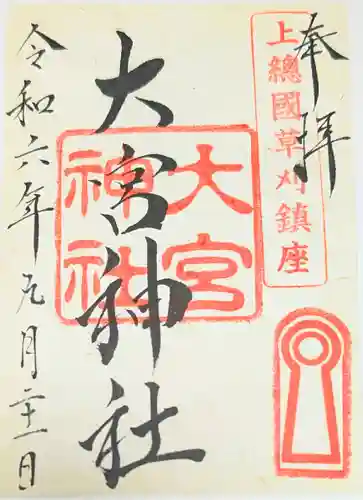 奉拝
上總國草刈鎮座
大宮神社
大宮
神社
令和六年元月二十一日